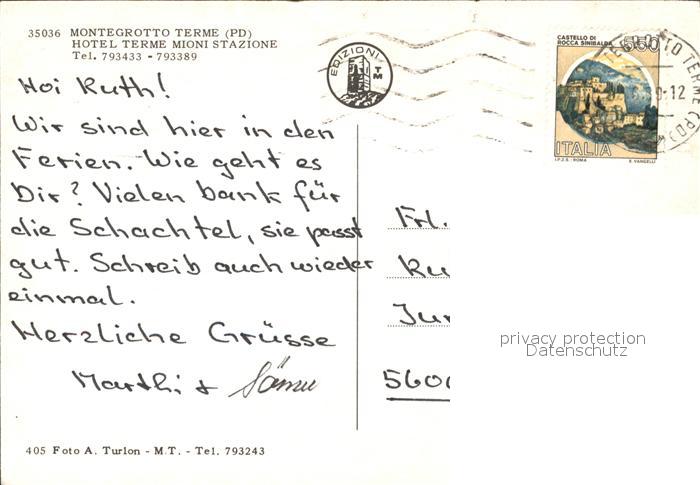 35036 MONTEGROTTO TERME (PD)
HOTEL TERME MIONI STAZIONE
Tel. 793433 - 793389
EDIZIONI
TM
CASTELLO DI
ROCCA SINIBALDA 550
ITALIA
I.P.Z.S. - ROMA E. VANGELLI
Hoi Ruth!
Wir sind hier in den
Ferien. Wie geht es
Dir? Vielen bank für
die Schachtel, sie passt
gut. Schreib auch wieder
einmal.
Herzliche Grüsse
Marthi + Sämu
Frl.
Ru
Jur
560
privacy protection
Datenschutz
405 Foto A. Turlon - M.T. - Tel. 793243